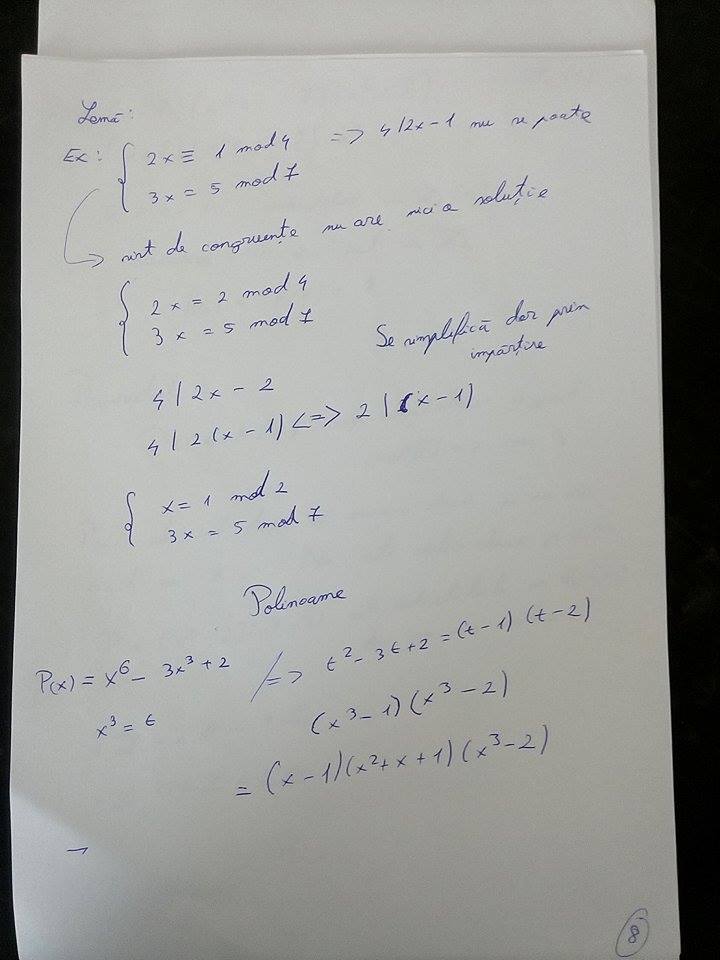 Lemă:
Ex: { 2x ≡ 1 mod 4 => 4 | 2x - 1 nu se poate
3x = 5 mod 7
sist de congruențe nu are nici o soluție
{ 2x = 2 mod 4
3x = 5 mod 7
Se simplifică doar prin
împărțire
4 | 2x - 2
4 | 2(x - 1) <=> 2 | (x - 1)
{ x = 1 mod 2
3x = 5 mod 7
Polinoame
P(x) = x⁶ - 3x³ + 2 /=> t² - 3t + 2 = (t - 1)(t - 2)
x³ = t (x³ - 1)(x³ - 2)
= (x - 1)(x² + x + 1)(x³ - 2)
→
8